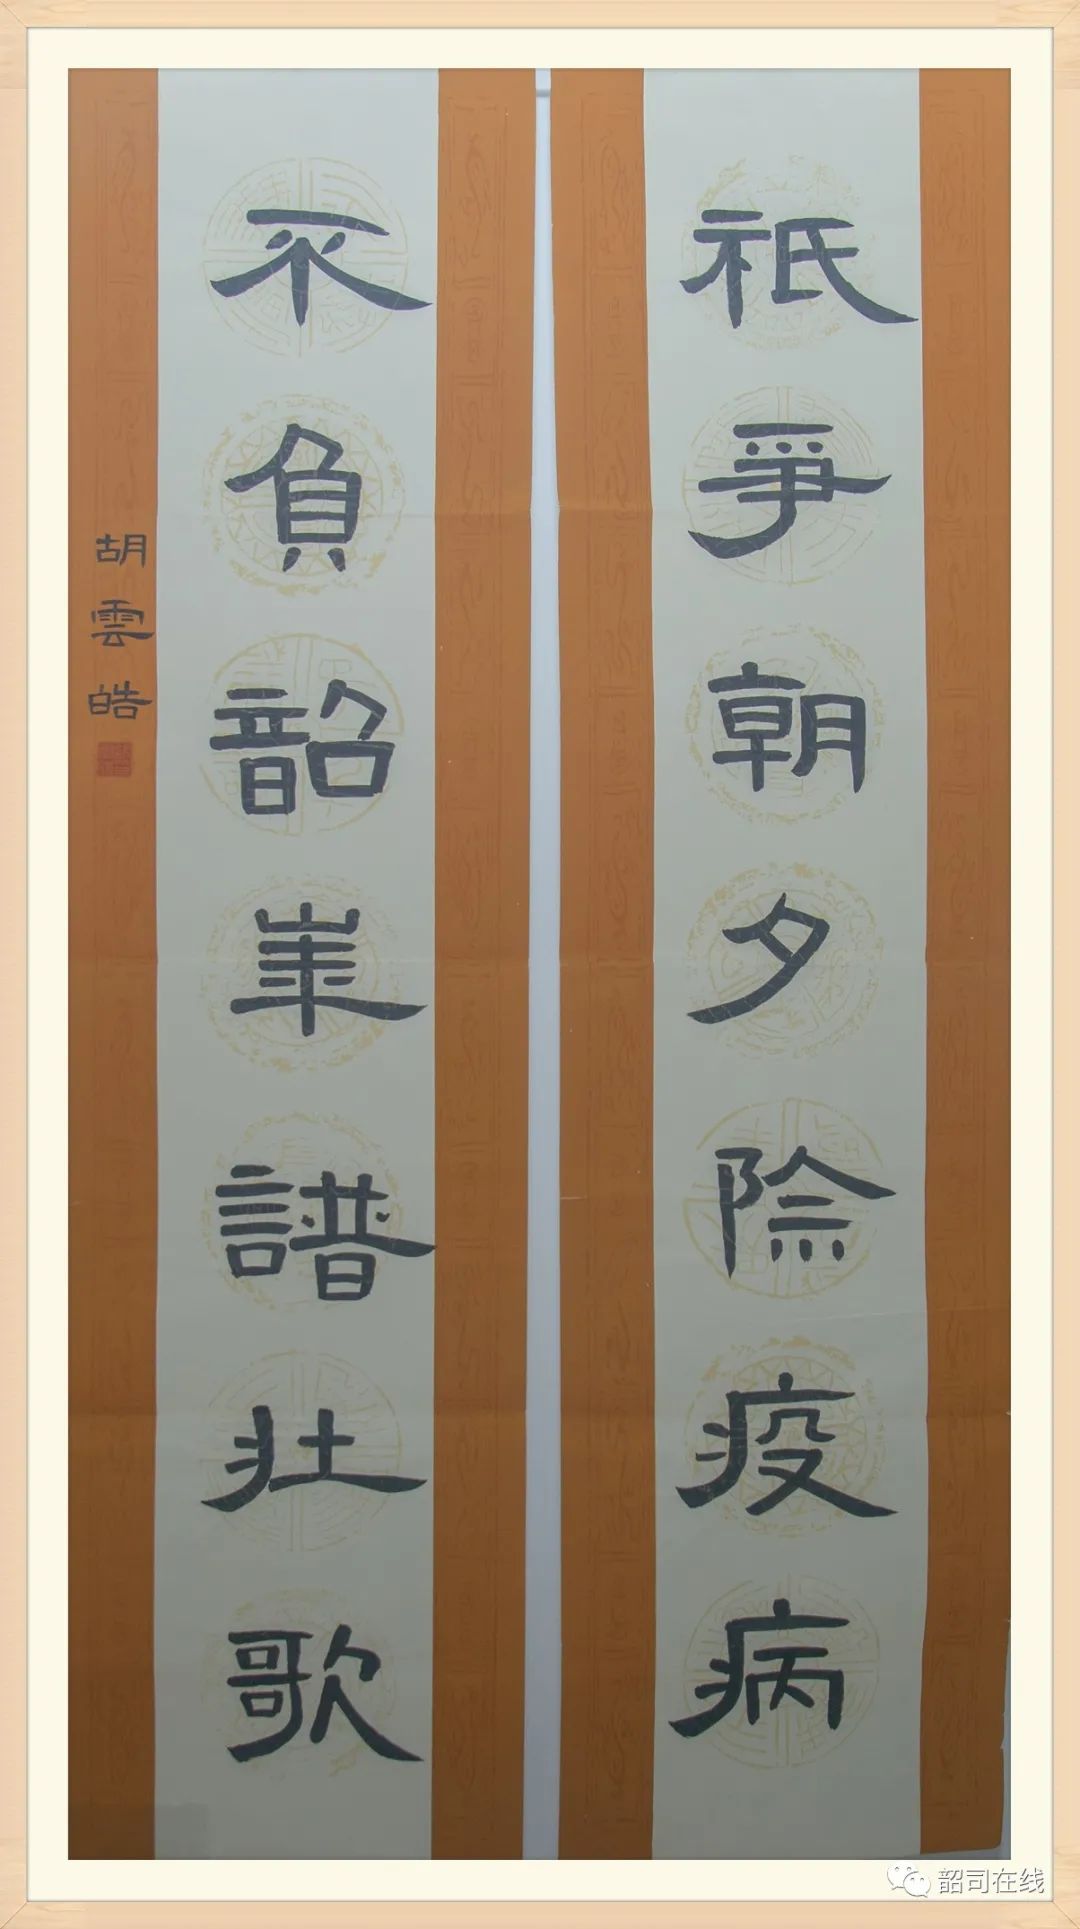 祇爭朝夕除疫病
不負韶華譜壯歌
胡雲皓
韶司在线